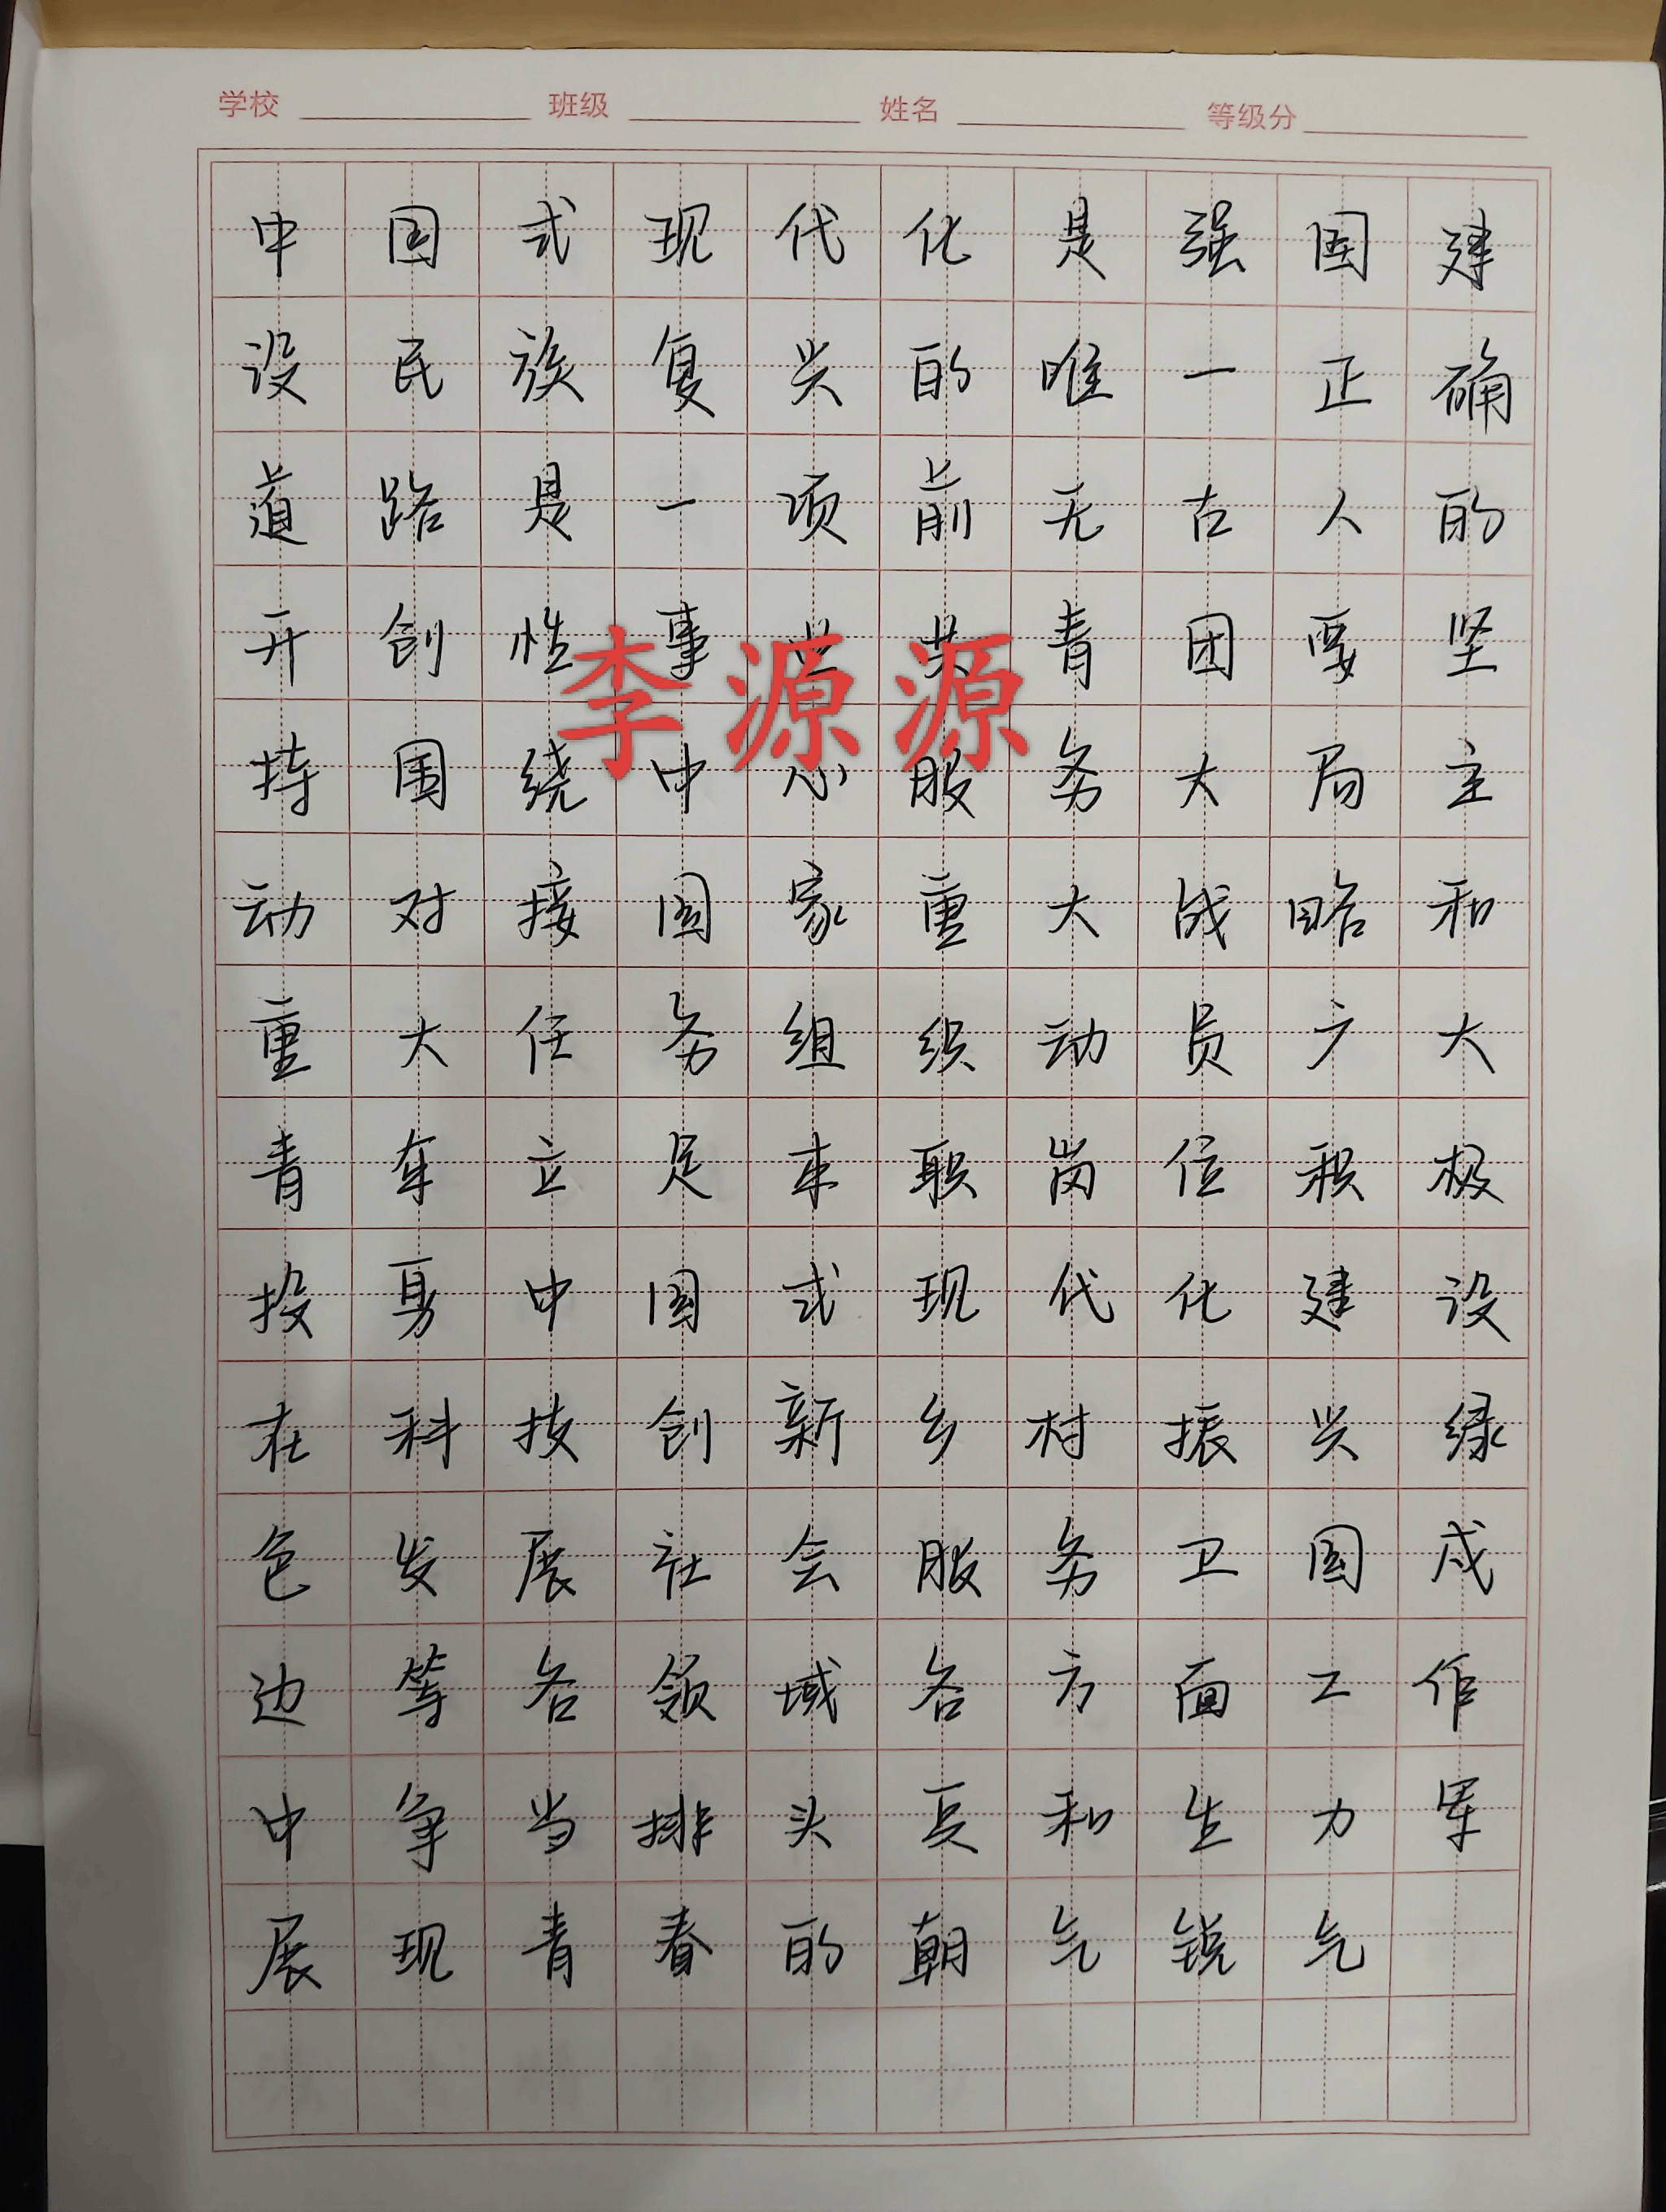 学校 班级 姓名 等级分
中国式现代化是强国建
设民族复兴的唯一正确
道路是一项前无古人的
开创性事业共青团要坚
李源源
持围绕中心服务大局主
动对接国家重大战略和
重大任务组织动员广大
青年立足本职岗位积极
投身中国式现代化建设
在科技创新乡村振兴绿
色发展社会服务卫国戍
边等各领域各方面工作
中争当排头兵和生力军
展现青春的朝气锐气